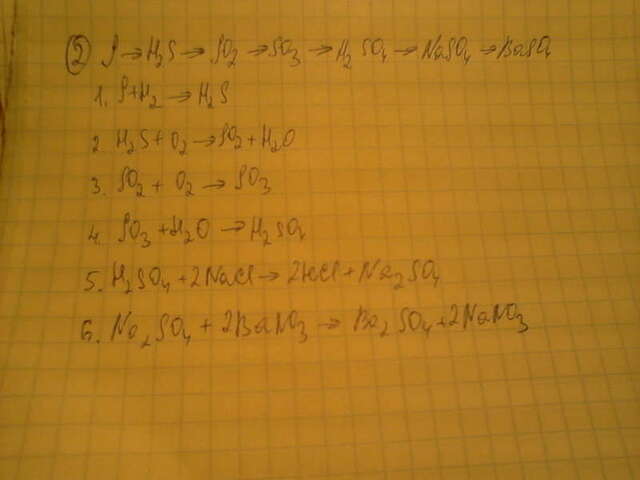 ② S → H₂S → SO₂ → SO₃ → H₂SO₄ → NaSO₄ → BaSO₄
1. S+H₂ → H₂S
2. H₂S + O₂ → SO₂ + H₂O
3. SO₂ + O₂ → SO₃
4. SO₃ + H₂O → H₂SO₄
5. H₂SO₄ + 2NaCl → 2HCl + Na₂SO₄
6. Na₂SO₄ + 2BaNO₃ → Ba₂SO₄ + 2NaNO₃